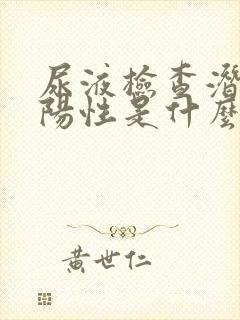 尿液檢查潛
陽性是什麼
黃世仁